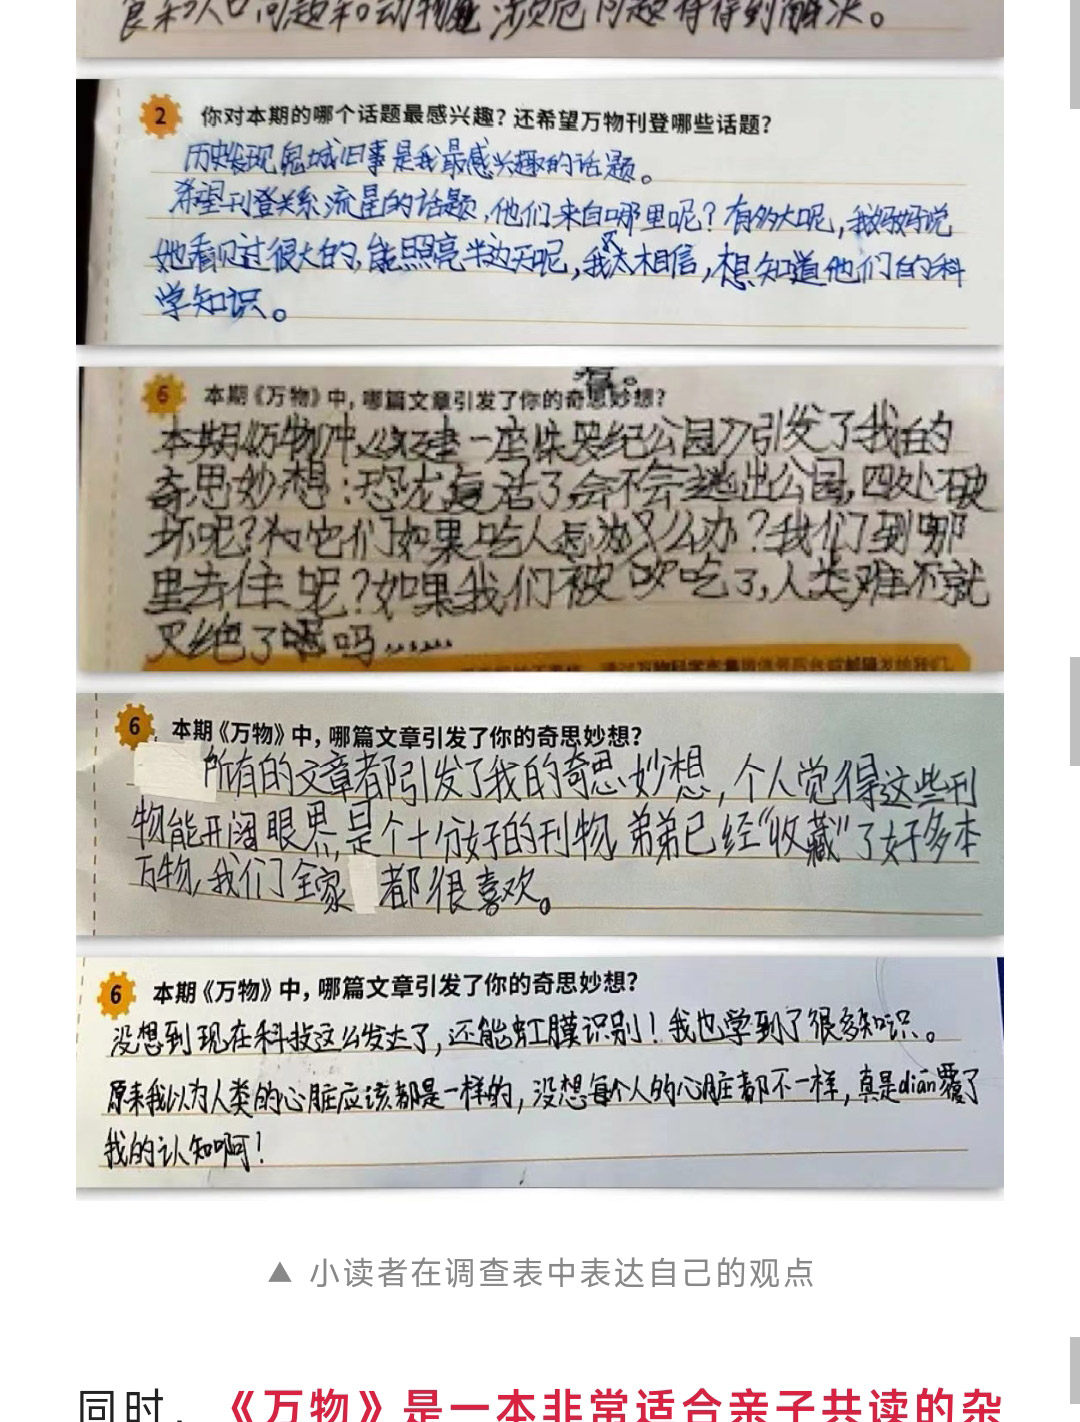 食和人口问题和动物 濒危问题得得到解决。
2 你对本期的哪个话题最感兴趣？还希望万物刊登哪些话题？
历史发现鬼城旧事是我最感兴趣的话题。
希望刊登关系流星的话题，他们来自哪里呢？有多大呢，我妈妈说
她看见过很大的，能照亮半边天呢，我不太相信，想知道他们的科
学知识。
6 本期《万物》中，哪篇文章引发了你的奇思妙想？
本期《万物》中《建一座侏罗纪公园》引发了我的
奇思妙想：恐龙复活了会不会逃出公园，四处破
坏呢？它们如果吃人怎么办？我们到哪
里去住呢？如果我们被吃了，人类难不就
灭绝了吗……
6 本期《万物》中，哪篇文章引发了你的奇思妙想？
所有的文章都引发了我的奇思妙想，个人觉得这些刊
物能开阔眼界，是个十分好的刊物，弟弟已经“收藏”了好多本
万物，我们全家 都很喜欢。
6 本期《万物》中，哪篇文章引发了你的奇思妙想？
没想到现在科技这么发达了，还能虹膜识别！我也学到了很多知识。
原来我以为人类的心脏应该都是一样的，没想每个人的心脏都不一样，真是diān覆了
我的认知啊！
▲ 小读者在调查表中表达自己的观点
同时，《万物》是一本非常适合亲子共读的杂